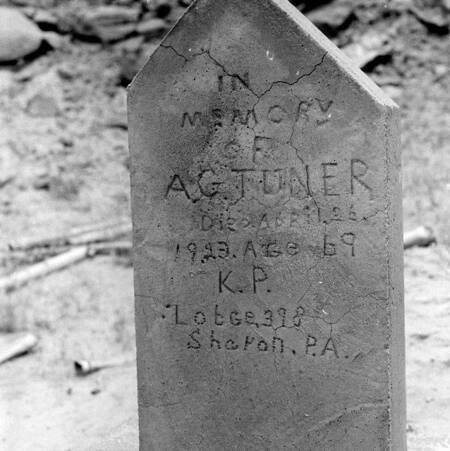 IN
MEMORY
OF
A.G.TUNER
DIED APRIL 26
1923. AGE 69
K.P.
Lodge 398
Sharon. P.A.